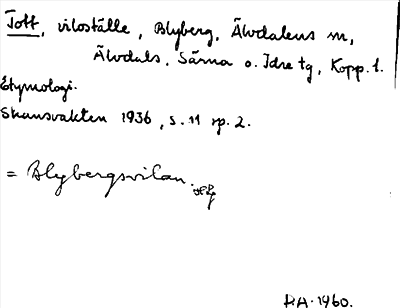 Tott, viloställe, Blyberg, Älvdalens m,
Älvdals, Särna o. Idre tg, Kopp. l.
Etymologi.
Skansvakten 1936, s. 11 sp. 2.
= Blybergsvilan.
D.A. 1960.